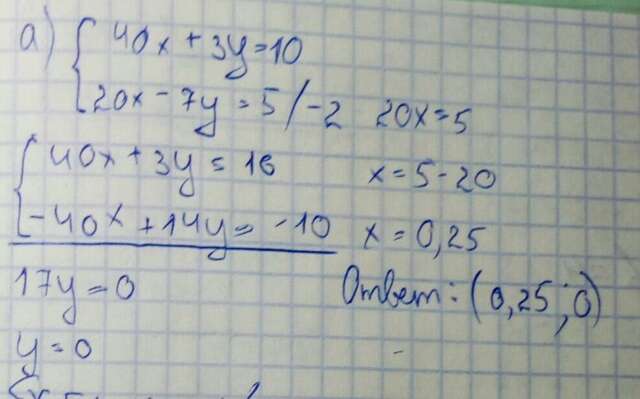 а) { 40x + 3y = 10
20x - 7y = 5 / -2
{ 40x + 3y = 10
-40x + 14y = -10
17y = 0
y = 0
20x = 5
x = 5 - 20
x = 0,25
Ответ: (0,25; 0)